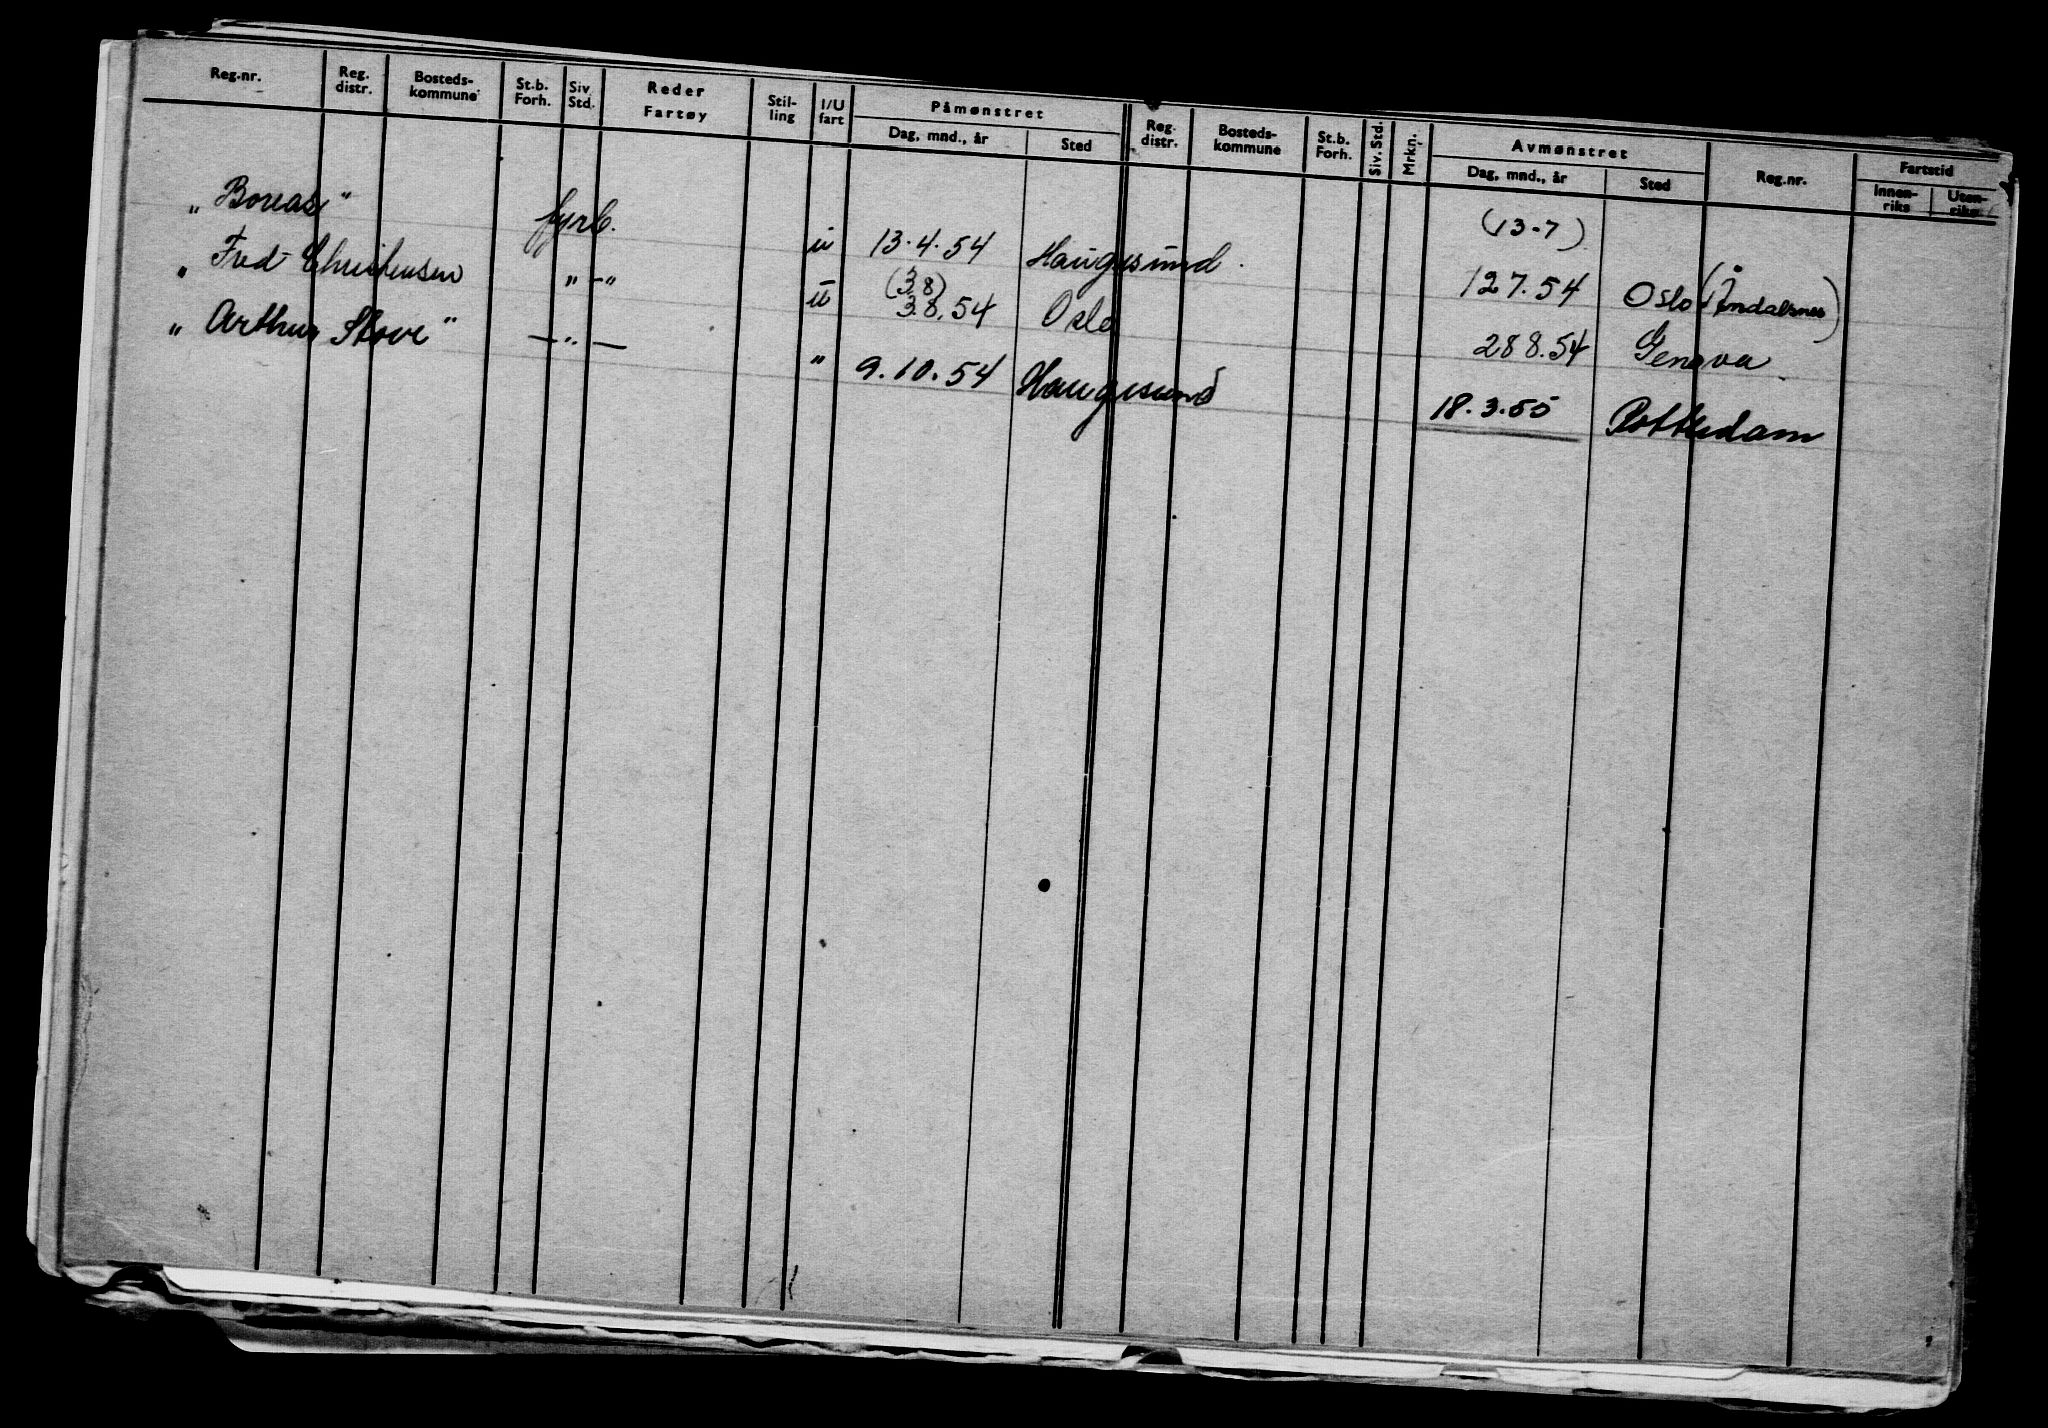 Reg.nr. Reg. distr. Bosteds- kommune St.b. Forh. Siv Std. Reder Fartøy Stil- ling I/U fart Påmønstret Dag, mnd., år Sted Reg. distr. Bosteds- kommune St.b. Forh. Siv. Std. Mrkn. Avmønstret Dag, mnd., år Sted Reg.nr. Fartstid Innen- riks Uten- riks
„Boreas" fyrb. u 13.4.54 Haugesund. (13-7) 127.54 Oslo (Åndalsnes)
„Fred Christensen „-" u (3.8) 3.8.54 Oslo 288.54 Genova
„Arthur Stove" — „ — " 9.10.54 Haugesund 18.3.55 Rotterdam